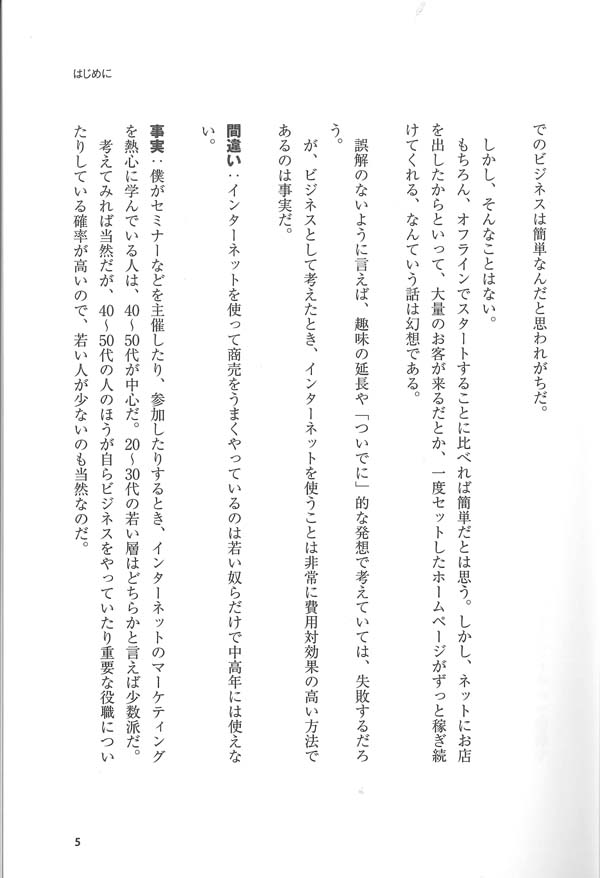 はじめに
でのビジネスは簡単なんだと思われがちだ。
しかし、そんなことはない。
もちろん、オフラインでスタートすることに比べれば簡単だとは思う。しかし、ネットにお店
を出したからといって、大量のお客が来るだとか、一度セットしたホームページがずっと稼ぎ続
けてくれる、なんていう話は幻想である。
誤解のないように言えば、趣味の延長や「ついでに」的な発想で考えていては、失敗するだろ
う。
が、ビジネスとして考えたとき、インターネットを使うことは非常に費用対効果の高い方法で
あるのは事実だ。
間違い：インターネットを使って商売をうまくやっているのは若い奴らだけで中高年には使えな
い。
事実：僕がセミナーなどを主催したり、参加したりするとき、インターネットのマーケティング
を熱心に学んでいる人は、40〜50代が中心だ。20〜30代の若い層はどちらかと言えば少数派だ。
考えてみれば当然だが、40〜50代の人のほうが自らビジネスをやっていたり重要な役職につい
たりしている確率が高いので、若い人が少ないのも当然なのだ。
5